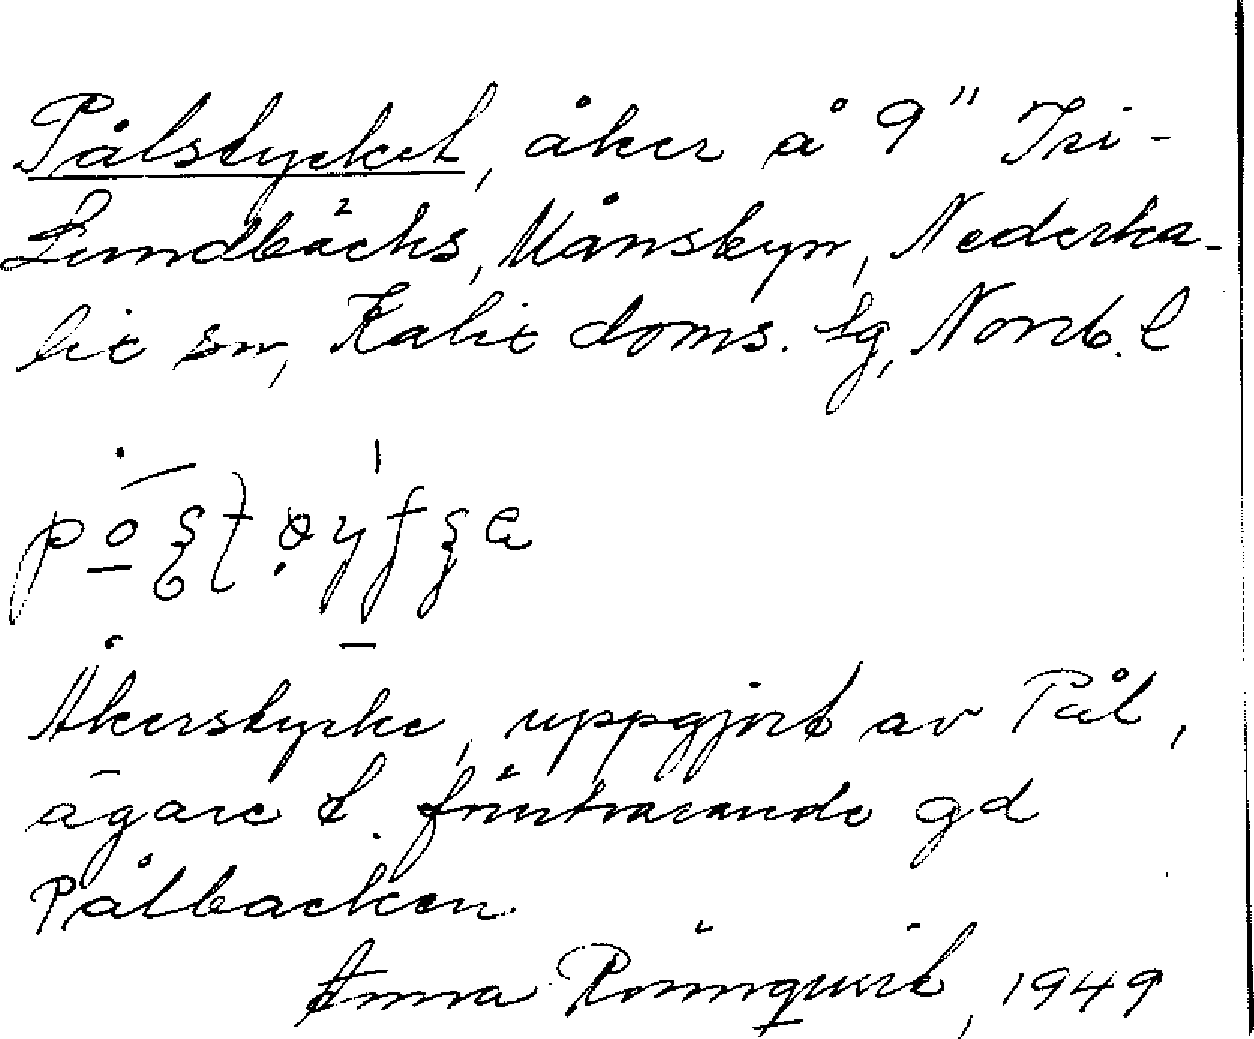 Pålstycket, åker å 9" Tri-
Lundbäcks, Månsbyn, Nederka-
lix sn, Kalix doms. lg, Norrb. l
Åkerstycke, uppgjort av Pål,
ägare t. försvarande gd
Pålbacken.
Anna Rönnqvist, 1949